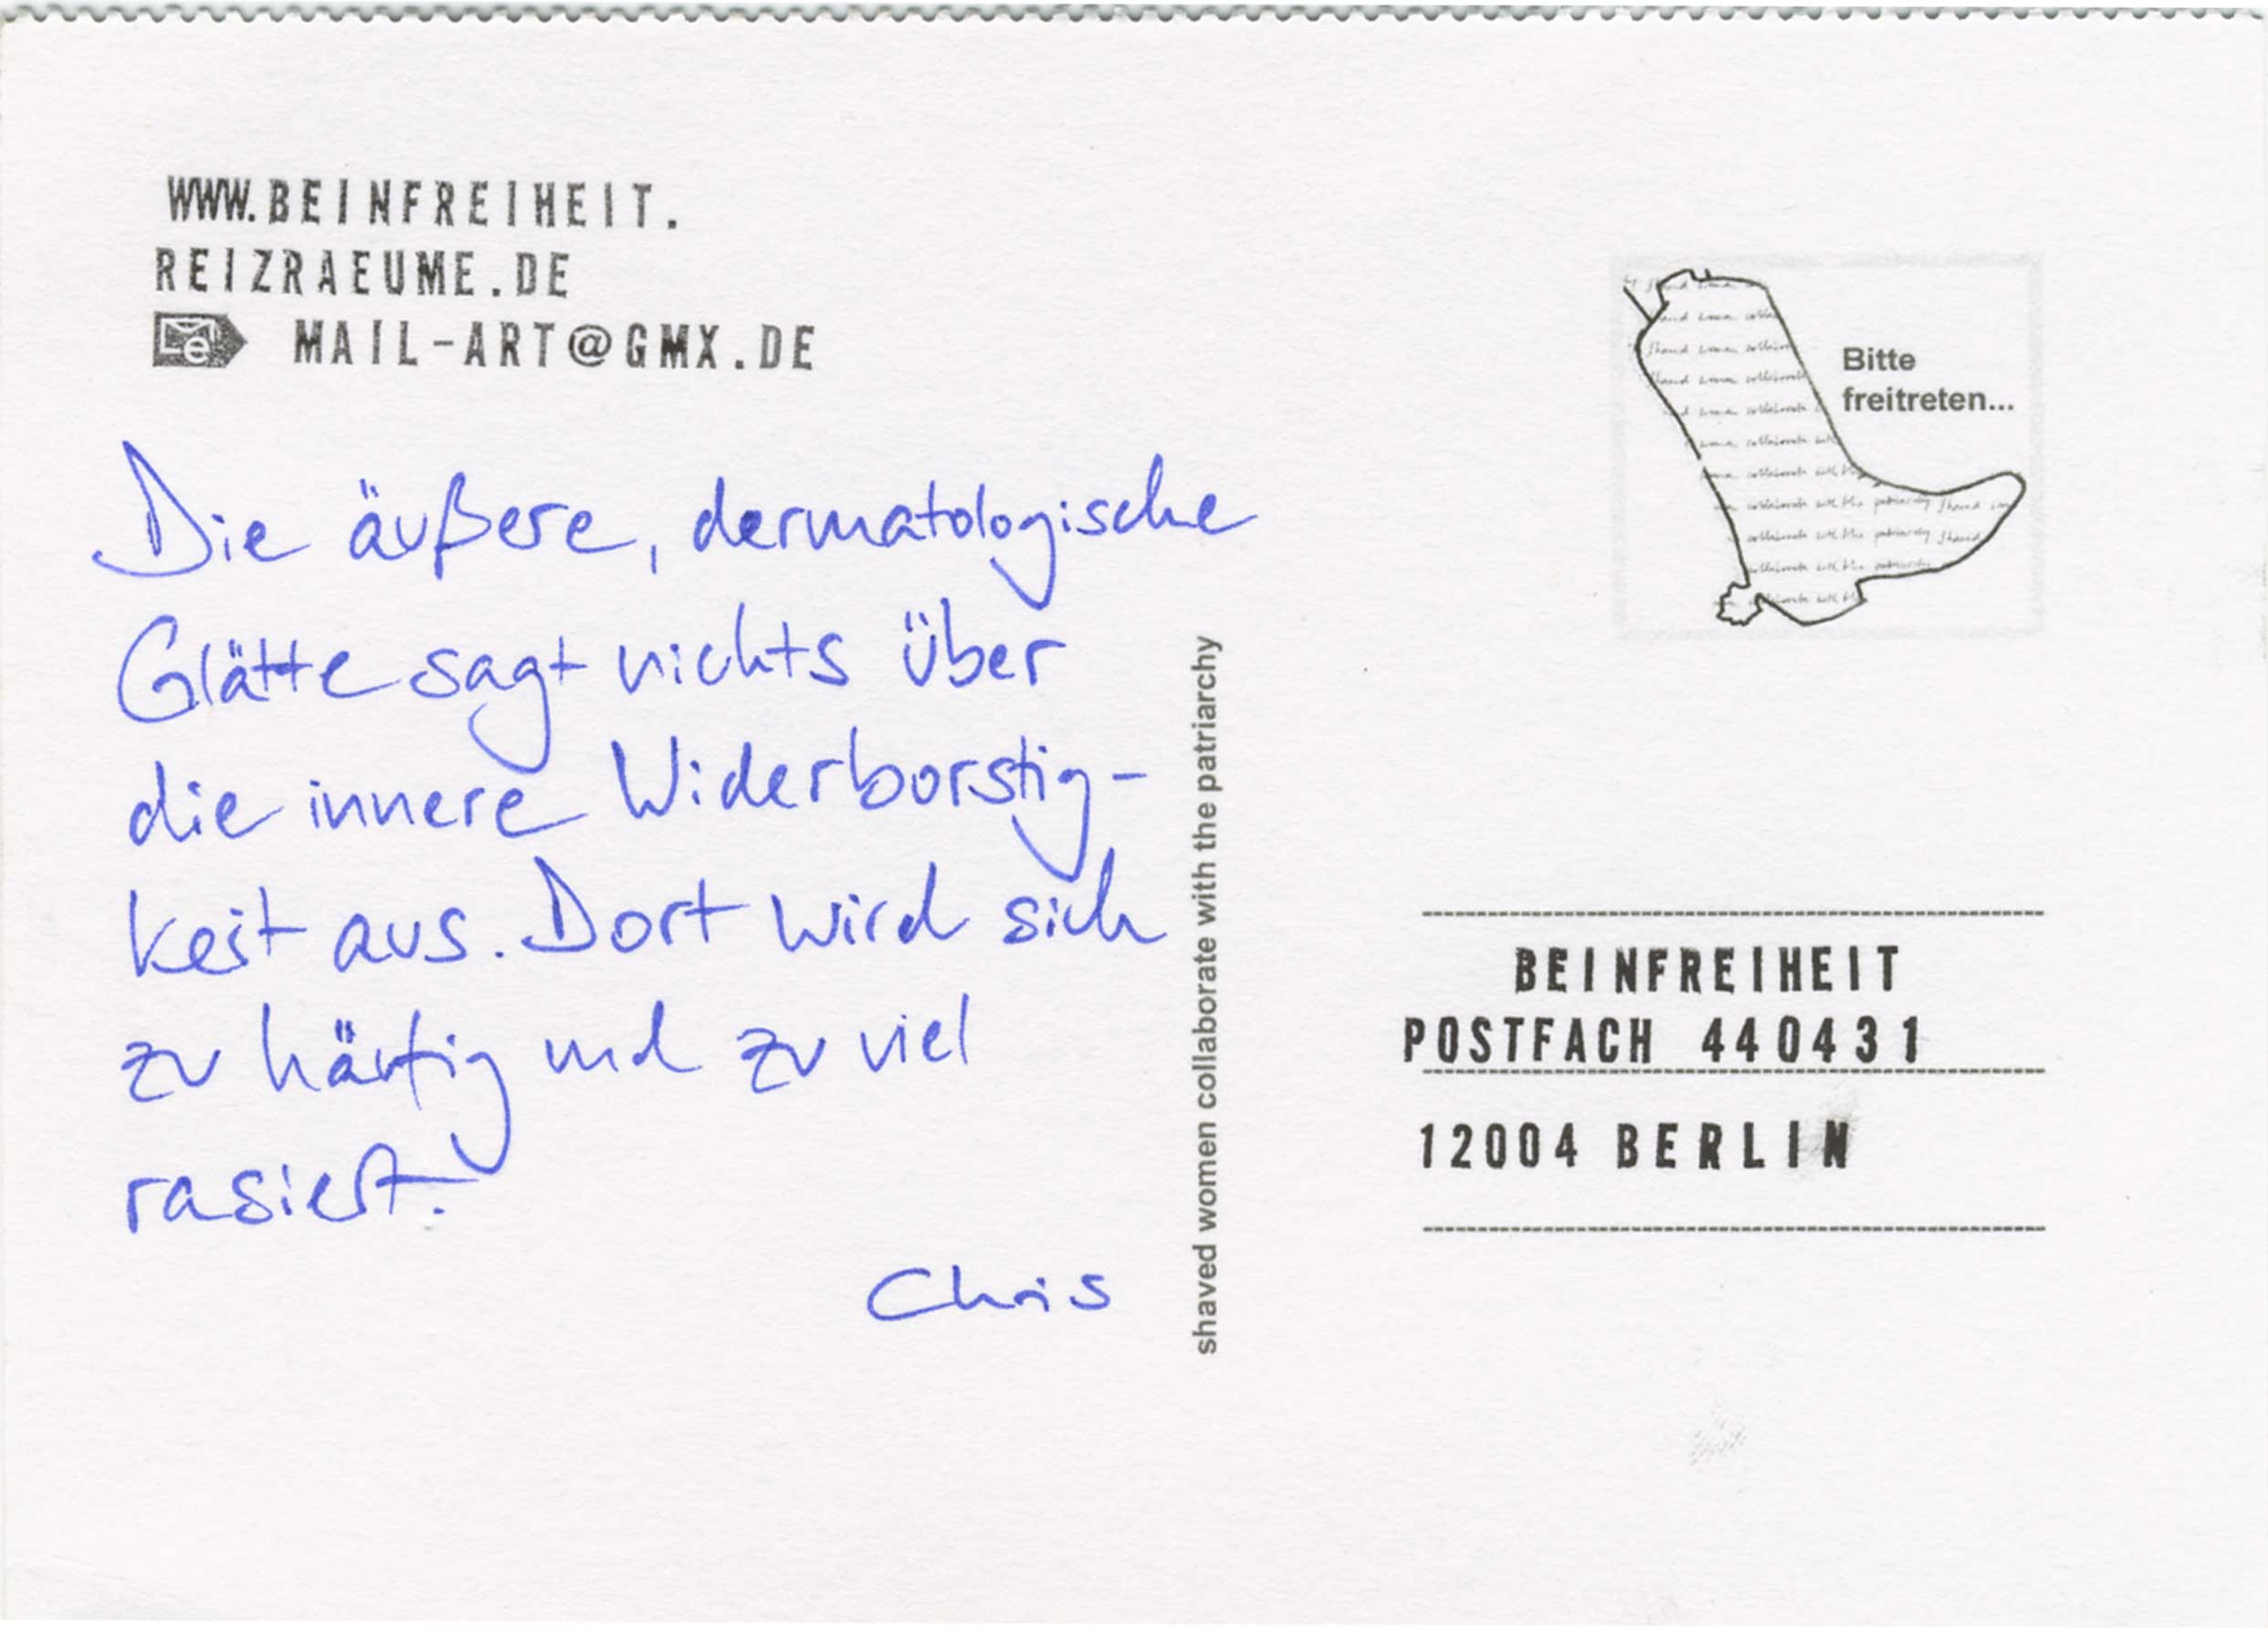 WWW.BEINFREIHEIT.
REIZRAEUME.DE
MAIL-ART@GMX.DE
Die äußere, dermatologische
Glätte sagt nichts über
die innere Widerborstig-
keit aus. Dort wird sich
zu häufig und zu viel
rasiert.
Chris
shaved women collaborate with the patriarchy
Bitte
freitreten...
BEINFREIHEIT
POSTFACH 440431
12004 BERLIN